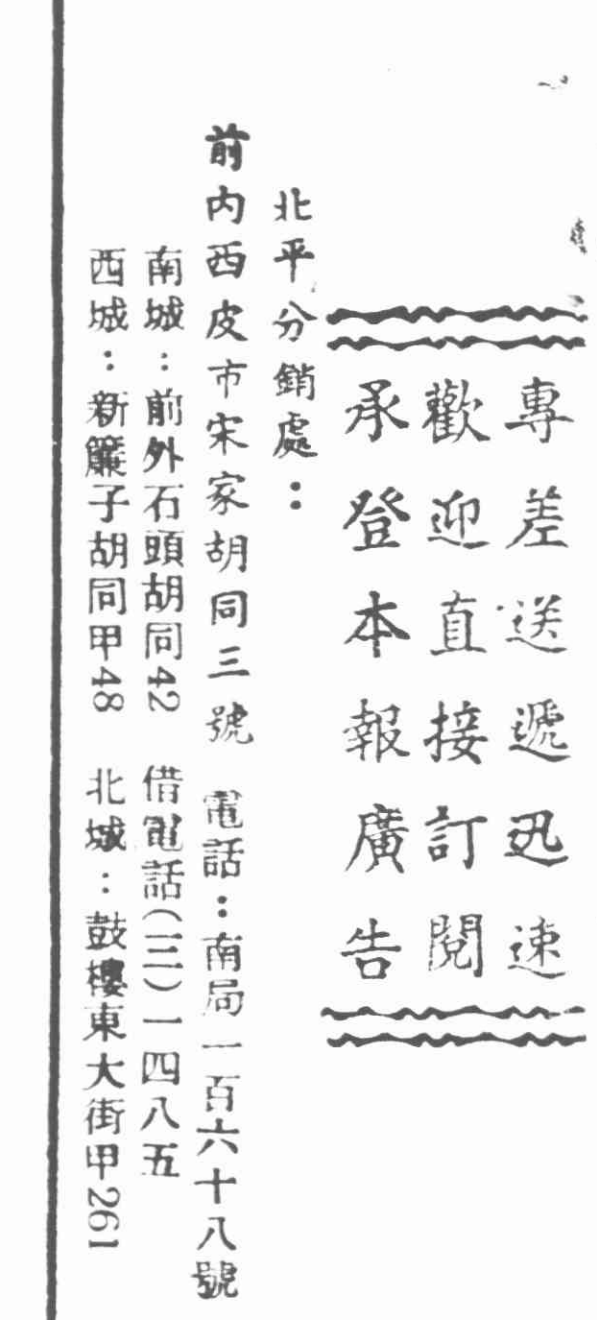 專差送遞迅速
歡迎直接訂閱
承登本報廣告
北平分銷處：
前内西皮市宋家胡同三號　電話：南局一百六十八號
南城：前外石頭胡同42　借電話(三)一四八五
西城：新簾子胡同甲48　北城：鼓樓東大街甲261